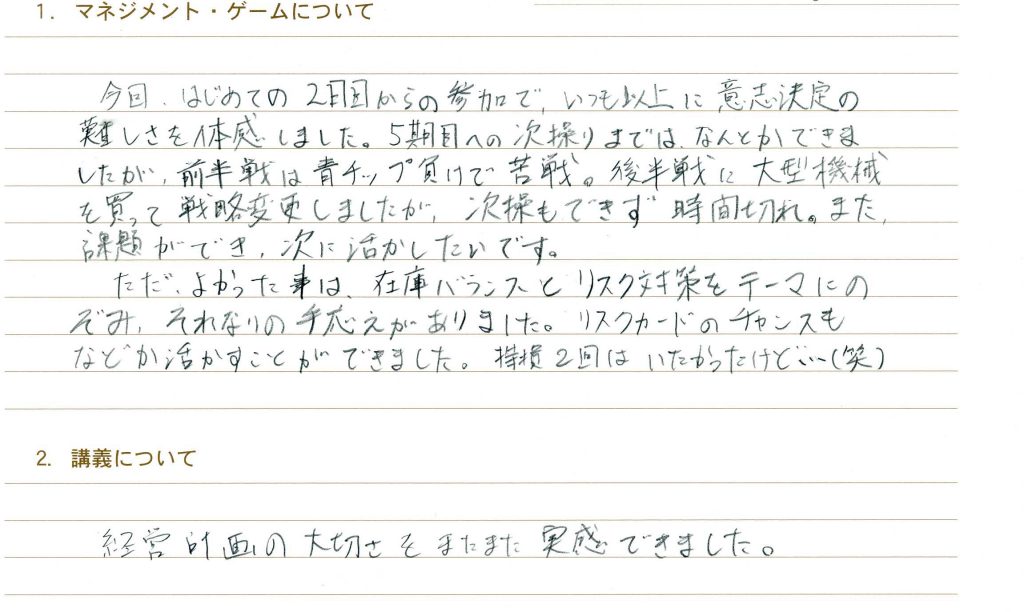 1. マネジメント・ゲームについて
今回、はじめての2日目からの参加で、いつも以上に意志決定の
難しさを体感しました。5期目への次繰りまでは、なんとかできま
したが、前半戦は青チップ負けで苦戦。後半戦に大型機械
を買って戦略変更しましたが、次繰もできず時間切れ。また、
課題ができ、次に活かしたいです。
ただ、よかった事は、在庫バランスとリスク対策をテーマにの
ぞみ、それなりの手応えがありました。リスクカードのチャンスも
などか活かすことができました。特損2回はいたかったけど…(笑)
2. 講義について
経営計画の大切さをまたまた実感できました。